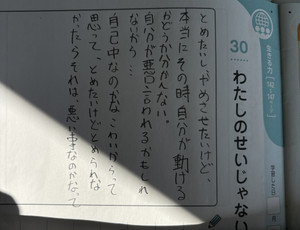 30
わたしのせいじゃない
生きる力
とめたいしやめさせたいけど、
本当にその時自分が動ける
かどうか分かんない。
自分が悪く言われるかもしれ
ないから…
自己中なのかな、こわいからって
思って、とめたいけどとめられな
かったらそれは、悪い事なのかなって